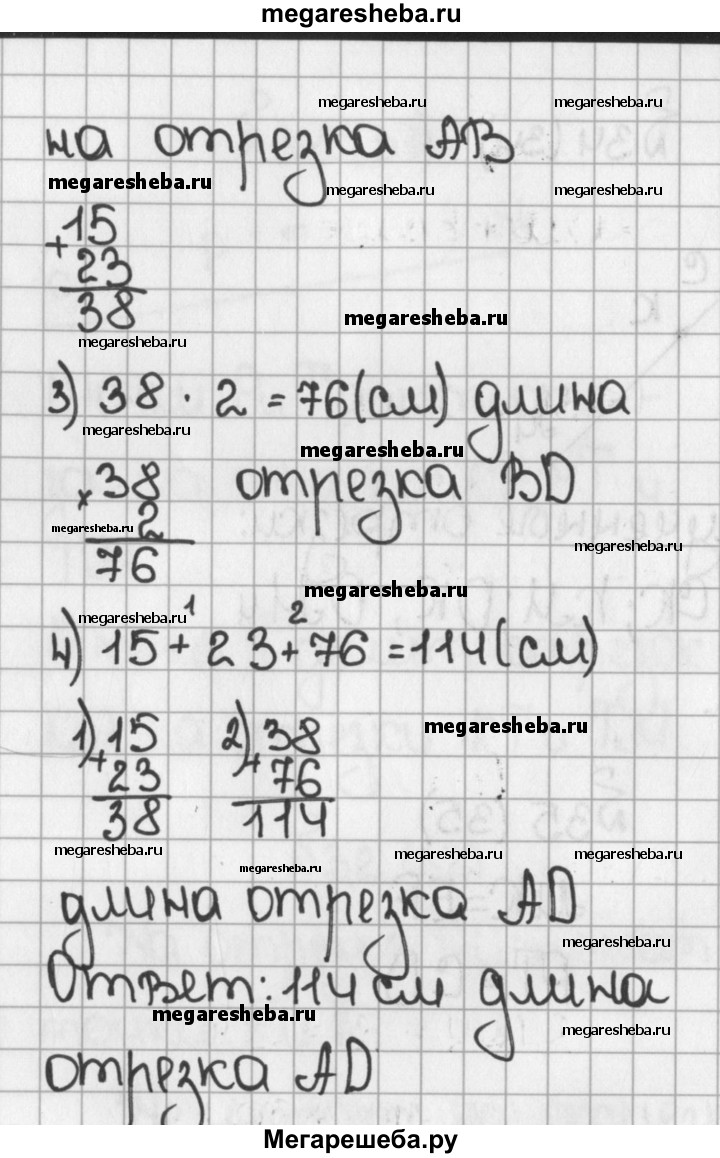 megaresheba.ru
megaresheba.ru megaresheba.ru
на отрезка АВ
megaresheba.ru megaresheba.ru megaresheba.ru
+15
23
38
megaresheba.ru
megaresheba.ru
3) 38 · 2 = 76 (см) длина
megaresheba.ru
megaresheba.ru
×38 отрезка BD
megaresheba.ru 2
76
megaresheba.ru
megaresheba.ru
megaresheba.ru 1 2
4) 15 + 23 + 76 = 114 (см)
1) 15 2) 38
megaresheba.ru
+23 +76
38 114
megaresheba.ru megaresheba.ru megaresheba.ru
megaresheba.ru
длина отрезка AD
megaresheba.ru
Ответ: 114 см длина
megaresheba.ru
megaresheba.ru
отрезка AD
Мегарешеба.ру